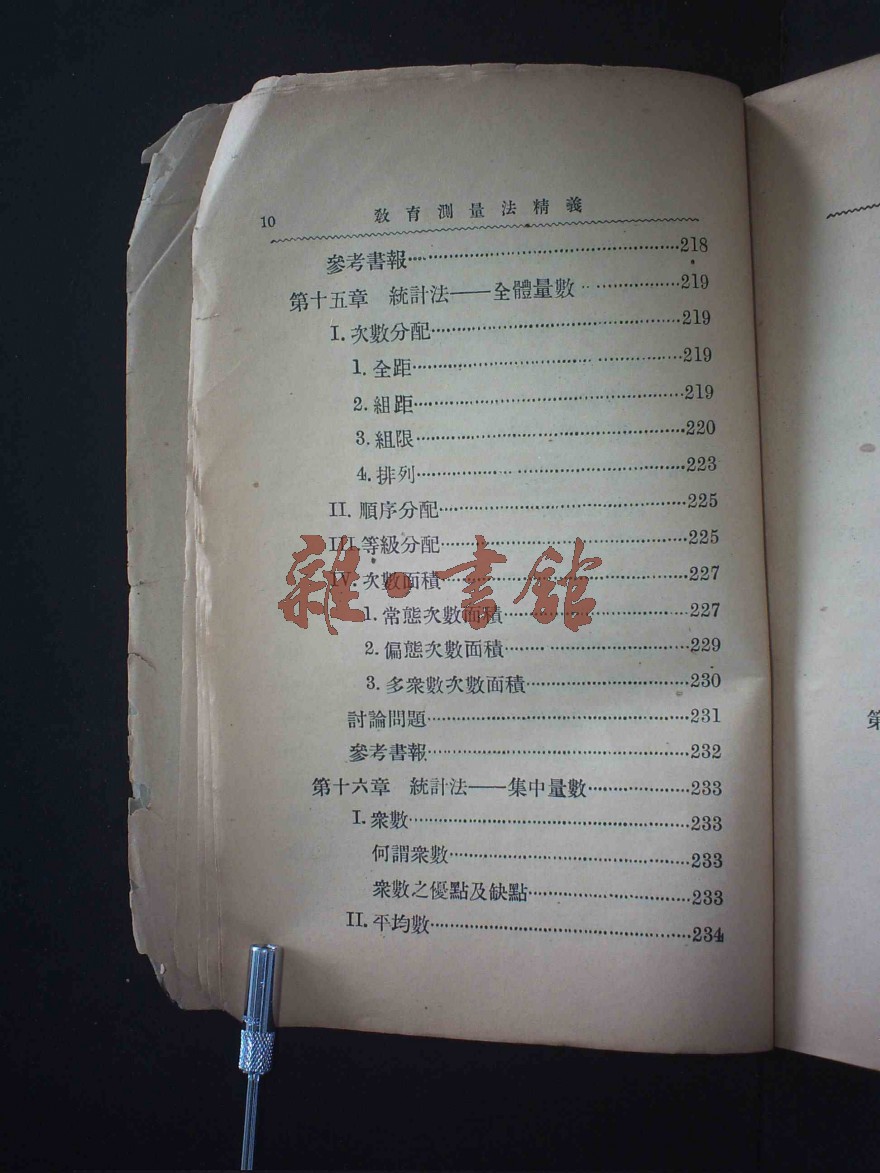 10 教育測量法精義
參考書報…………218
第十五章 統計法——全體量數…………219
I. 次數分配…………219
1. 全距…………219
2. 組距…………219
3. 組限…………220
4. 排列…………223
II. 順序分配…………225
III. 等級分配…………225
IV. 次數面積…………227
1. 常態次數面積…………227
2. 偏態次數面積…………229
3. 多衆數次數面積…………230
討論問題…………231
參考書報…………232
第十六章 統計法——集中量數…………233
I. 衆數…………233
何謂衆數…………233
衆數之優點及缺點…………233
II. 平均數…………234
雜·書館
第